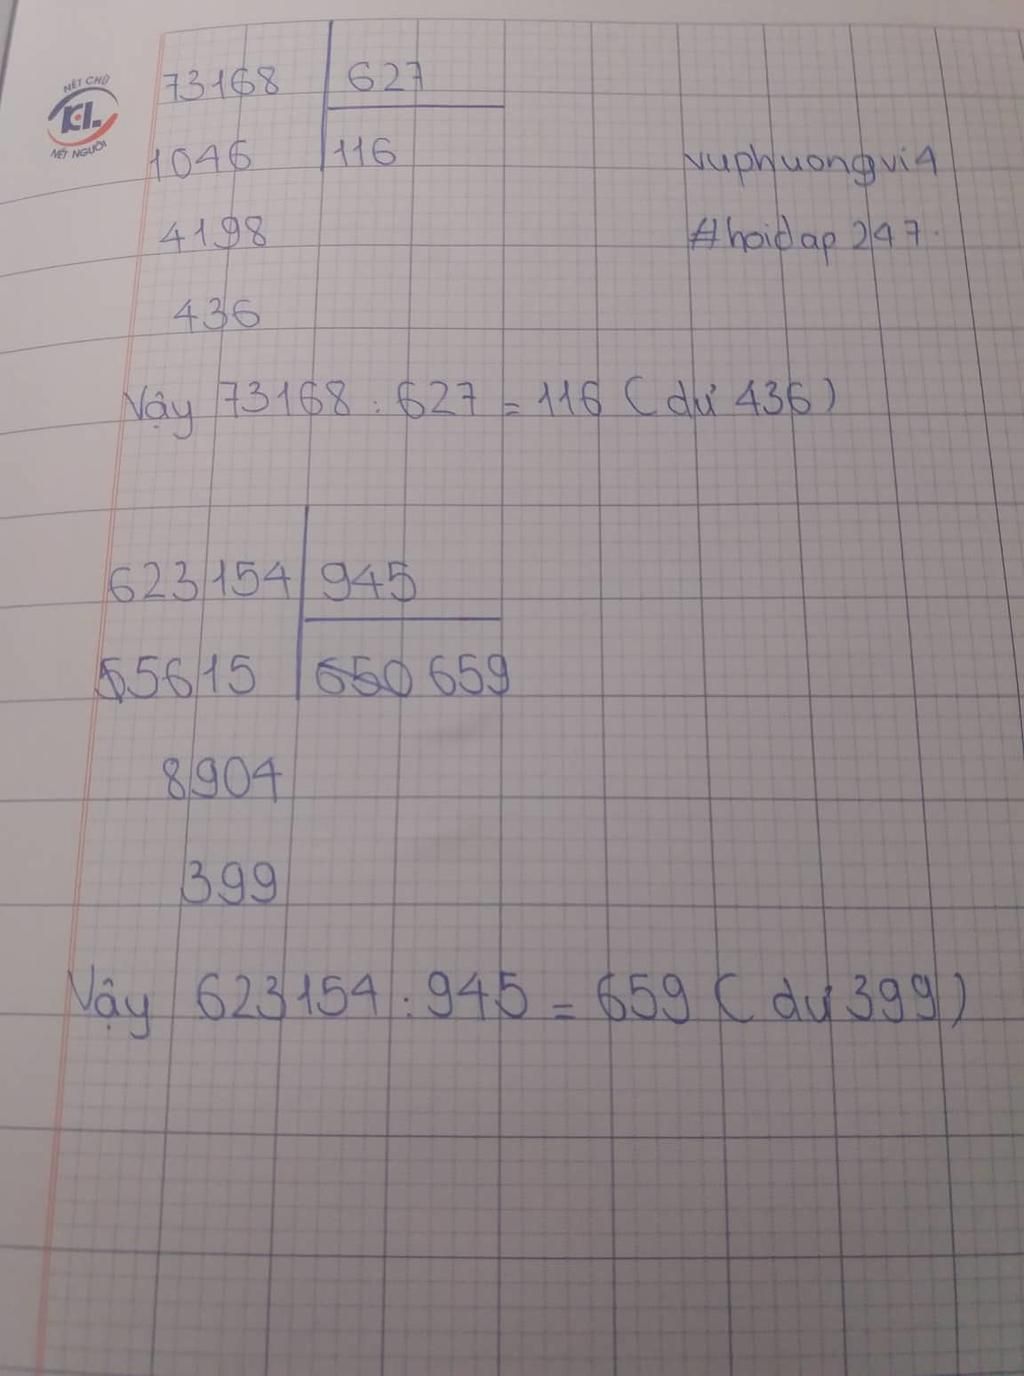 NÉT CHỮ
KL.
NÉT NGƯỜI
73168 627
1046 116
vuphuongvi4
4198
#hoidap247.
436
Vậy 73168 : 627 = 116 ( dư 436 )
623154 945
55615 650 659
8904
399
Vậy 623154 : 945 = 659 ( dư 399 )